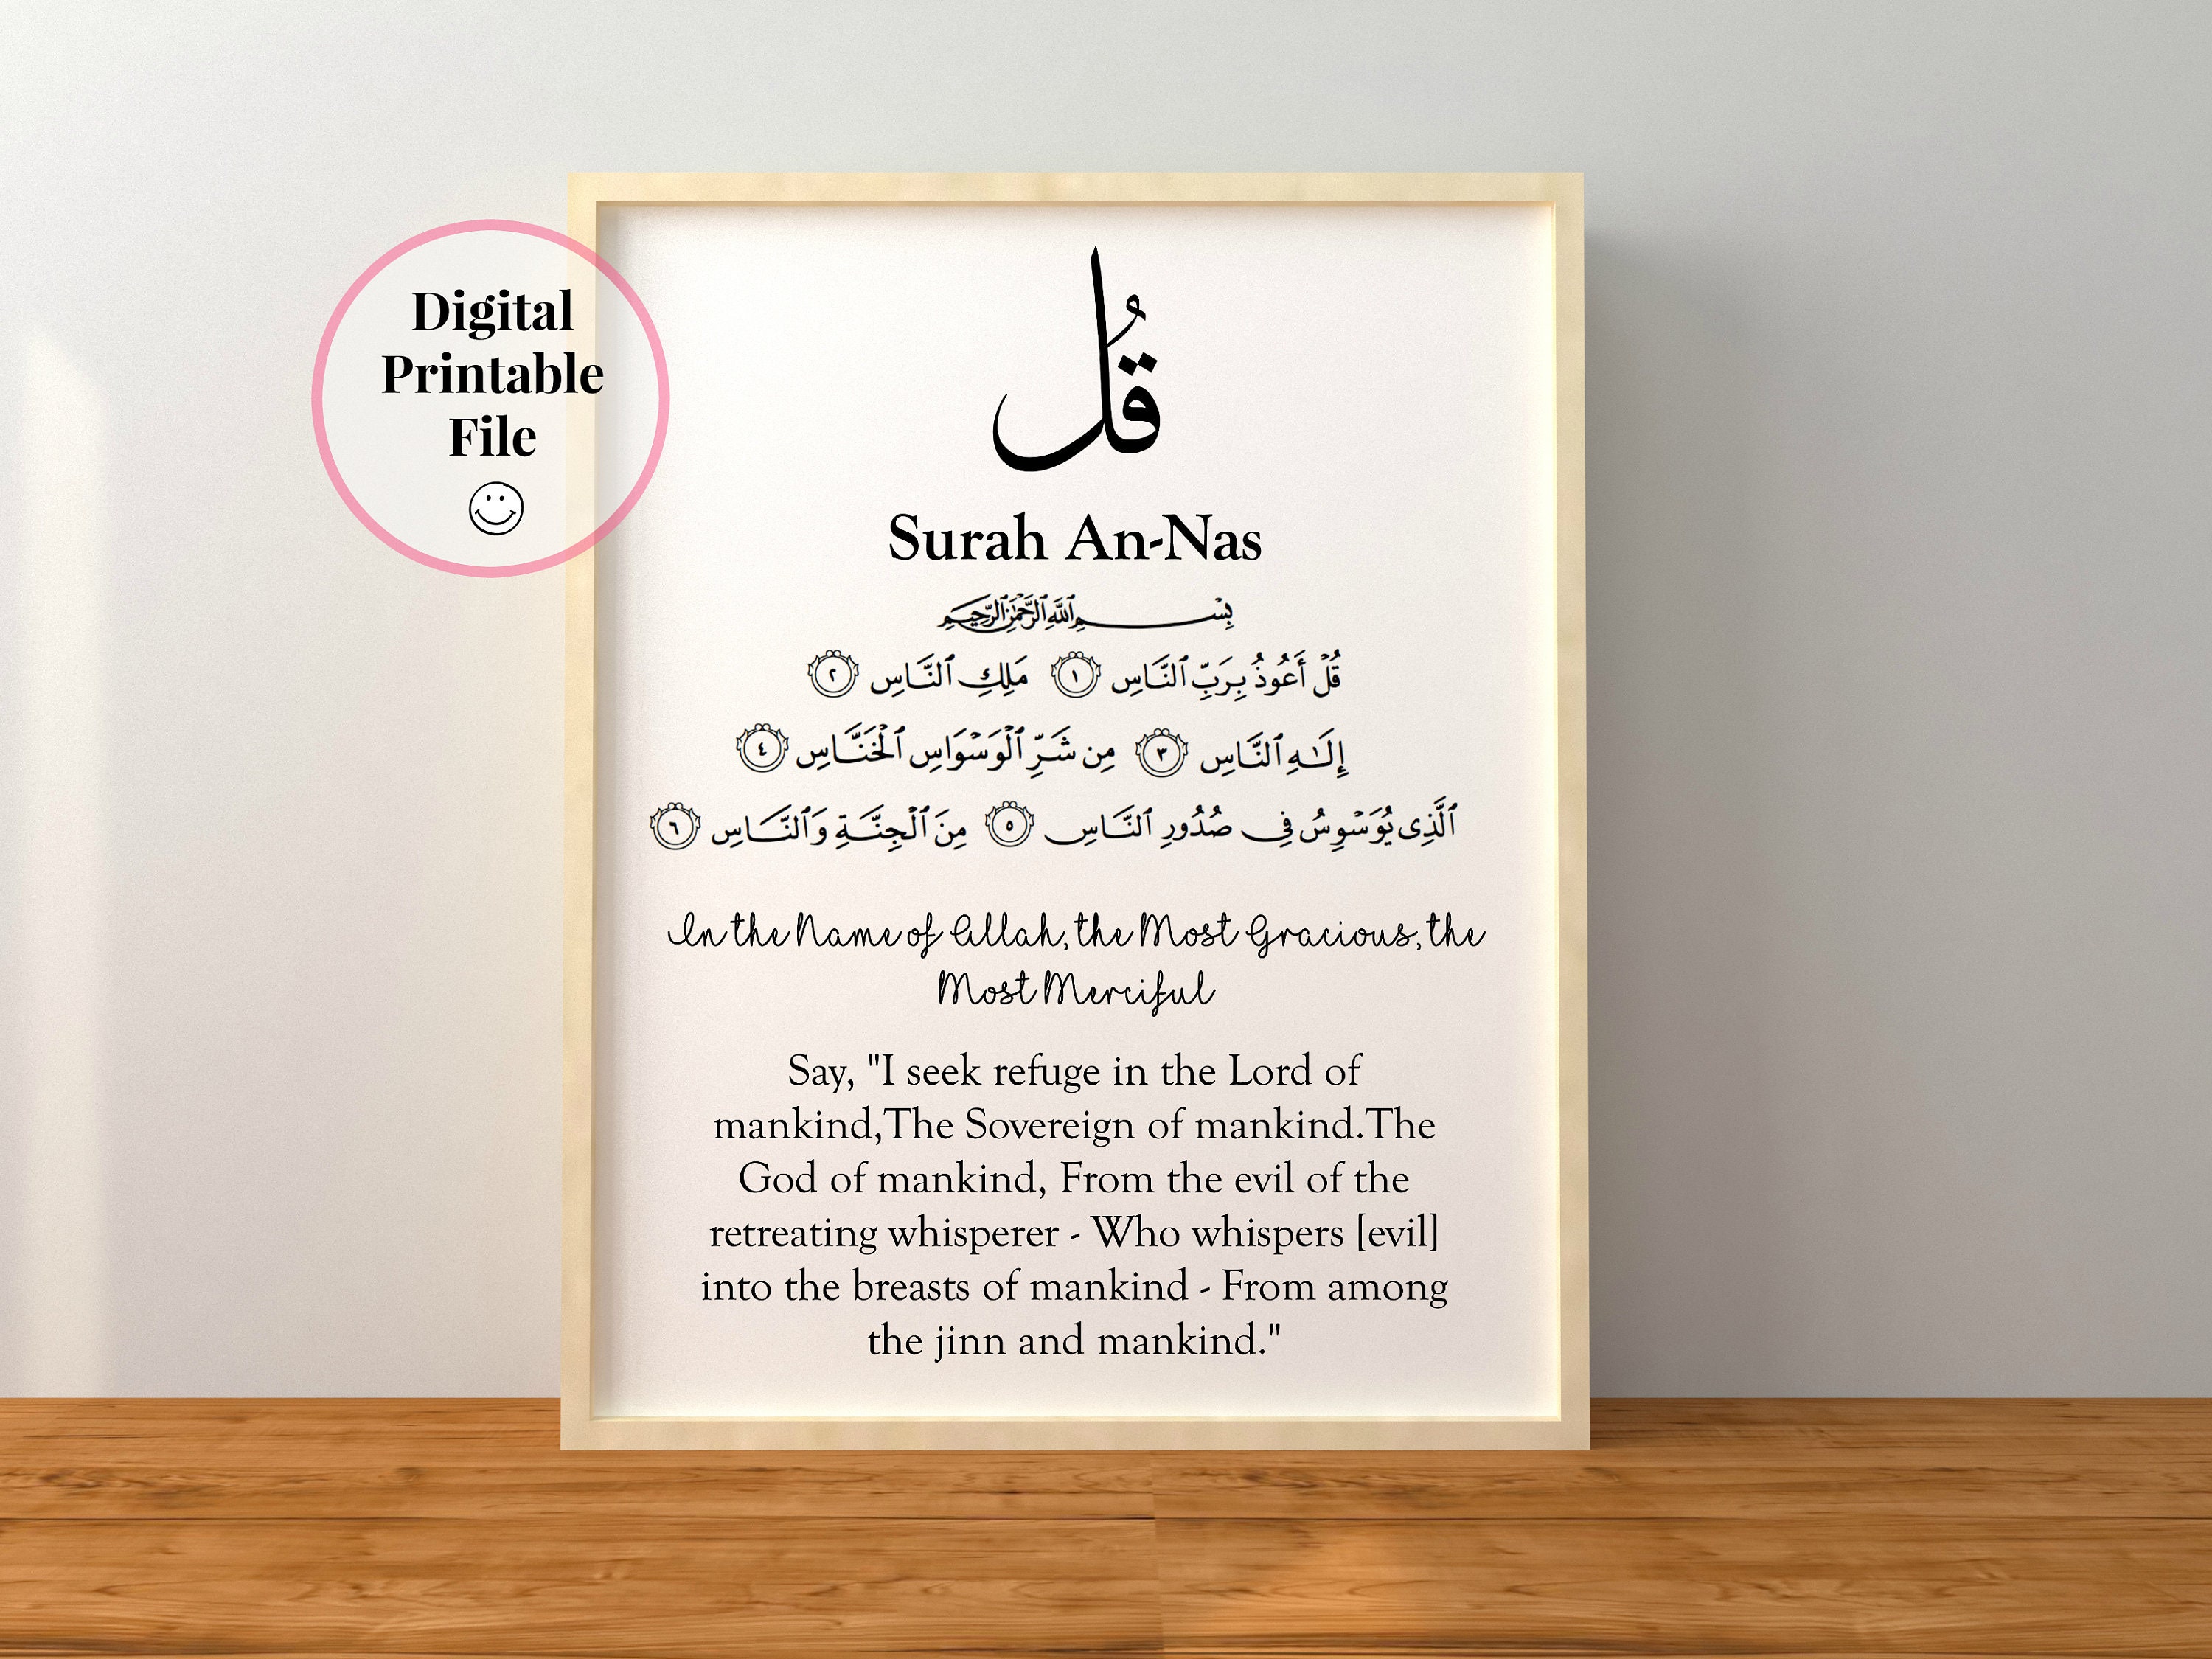 Digital
Printable
File
قُل
Surah An-Nas
بِسْمِ ٱللَّهِ ٱلرَّحْمَٰنِ ٱلرَّحِيمِ
قُلْ أَعُوذُ بِرَبِّ ٱلنَّاسِ ١ مَلِكِ ٱلنَّاسِ ٢
إِلَٰهِ ٱلنَّاسِ ٣ مِن شَرِّ ٱلْوَسْوَاسِ ٱلْخَنَّاسِ ٤
ٱلَّذِى يُوَسْوِسُ فِى صُدُورِ ٱلنَّاسِ ٥ مِنَ ٱلْجِنَّةِ وَٱلنَّاسِ ٦
In the Name of Allah, the Most Gracious, the
Most Merciful
Say, "I seek refuge in the Lord of
mankind,The Sovereign of mankind.The
God of mankind, From the evil of the
retreating whisperer - Who whispers [evil]
into the breasts of mankind - From among
the jinn and mankind."